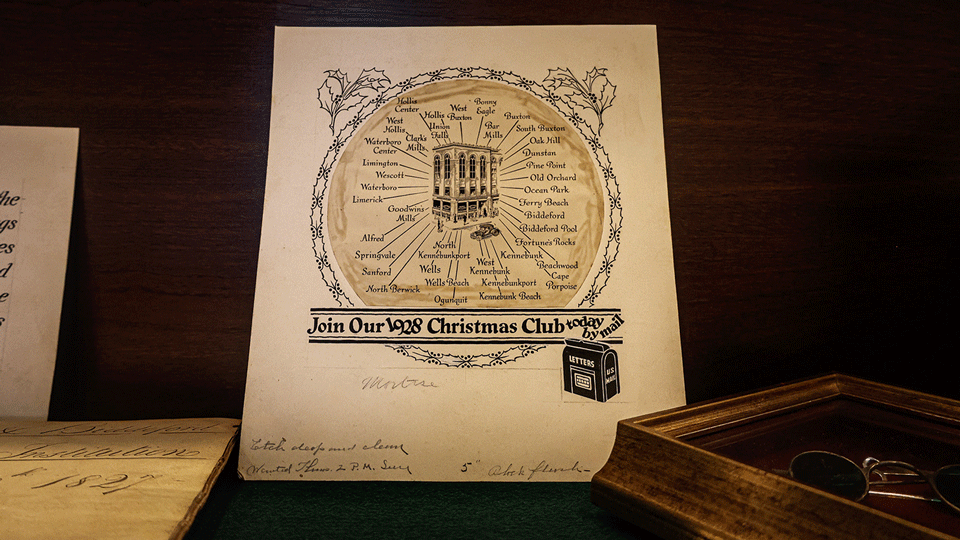 the
gs
es
d
e
s
Hollis
Center
West
Hollis
Hollis
Union
Falls
West
Buxton
Bonny
Eagle
Bar
Mills
Buxton
South Buxton
Oak Hill
Dunstan
Pine Point
Old Orchard
Ocean Park
Ferry Beach
Biddeford
Biddeford Pool
Fortune's Rocks
Beachwood
Cape
Porpoise
Kennebunk
Kennebunkport
Kennebunk Beach
West
Kennebunk
North
Kennebunkport
Wells
Wells Beach
Ogunquit
North Berwick
Sanford
Springvale
Alfred
Goodwins
Mills
Limerick
Waterboro
Wescott
Limington
Waterboro
Center
Clark's
Mills
Join Our 1928 Christmas Club today
by mail
LETTERS
U.S.
MAIL
Mortise
Etch deep and clean
Wanted Thurs. 2 P.M. Sure
5"
Biddeford
Institution
1827